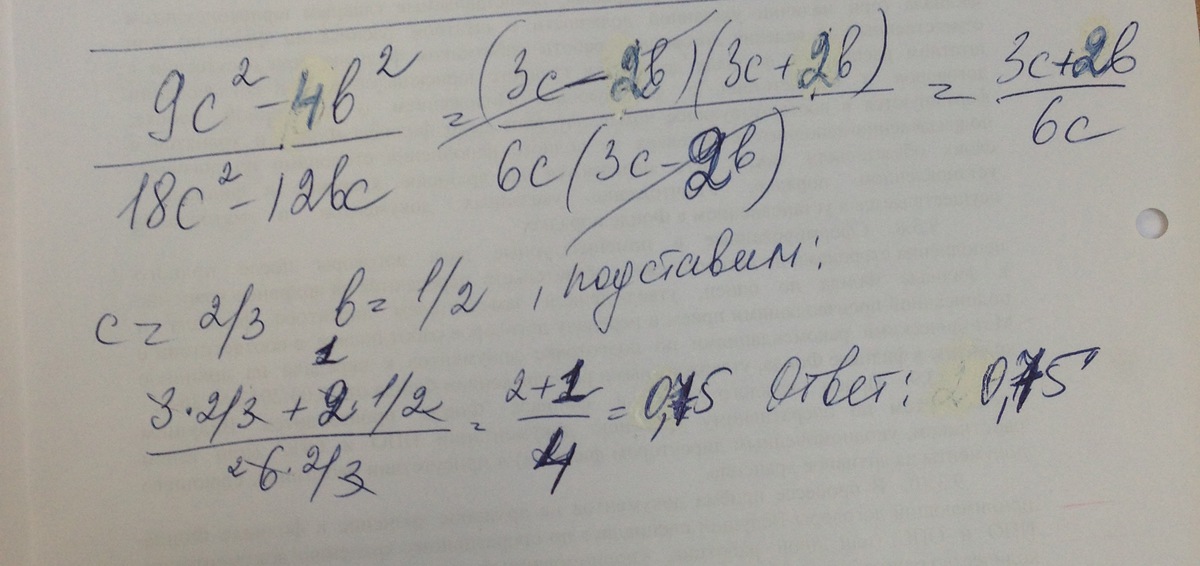 9c² - 4в² / 18c² - 12вc = (3c - 2в)(3c + 2в) / 6c(3c - 2в) = 3c + 2в / 6c
c = 2/3 в = 1/2 , подставим:
3 · 2/3 + 2 · 1/2 / 6 · 2/3 = 2 + 1 / 4 = 0,75 Ответ: 0,75